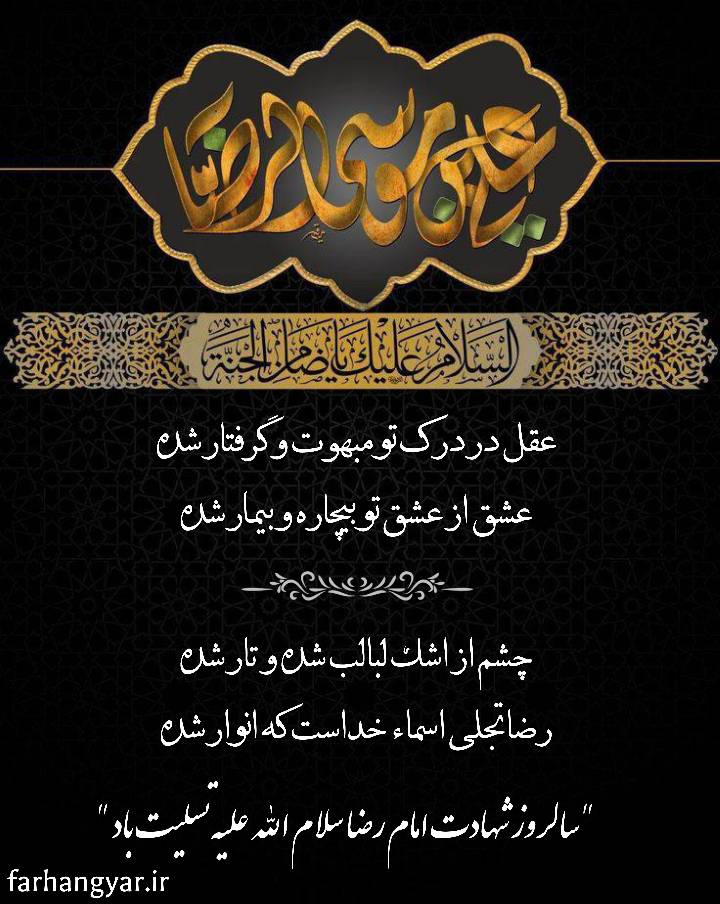 علی بن موسی الرضا
السَّلامُ عَلَیْكَ یَا ضَامِنَ الْجَنَّة
عقل در درک تو مبهوت و گرفتار شده
عشق از عشق تو بیچاره و بیمار شده
چشم از اشک لبالب شده و تار شده
رضا تجلی اسماء خداست که انوار شده
"سالروز شهادت امام رضا سلام الله علیه تسلیت باد"
farhangyar.ir